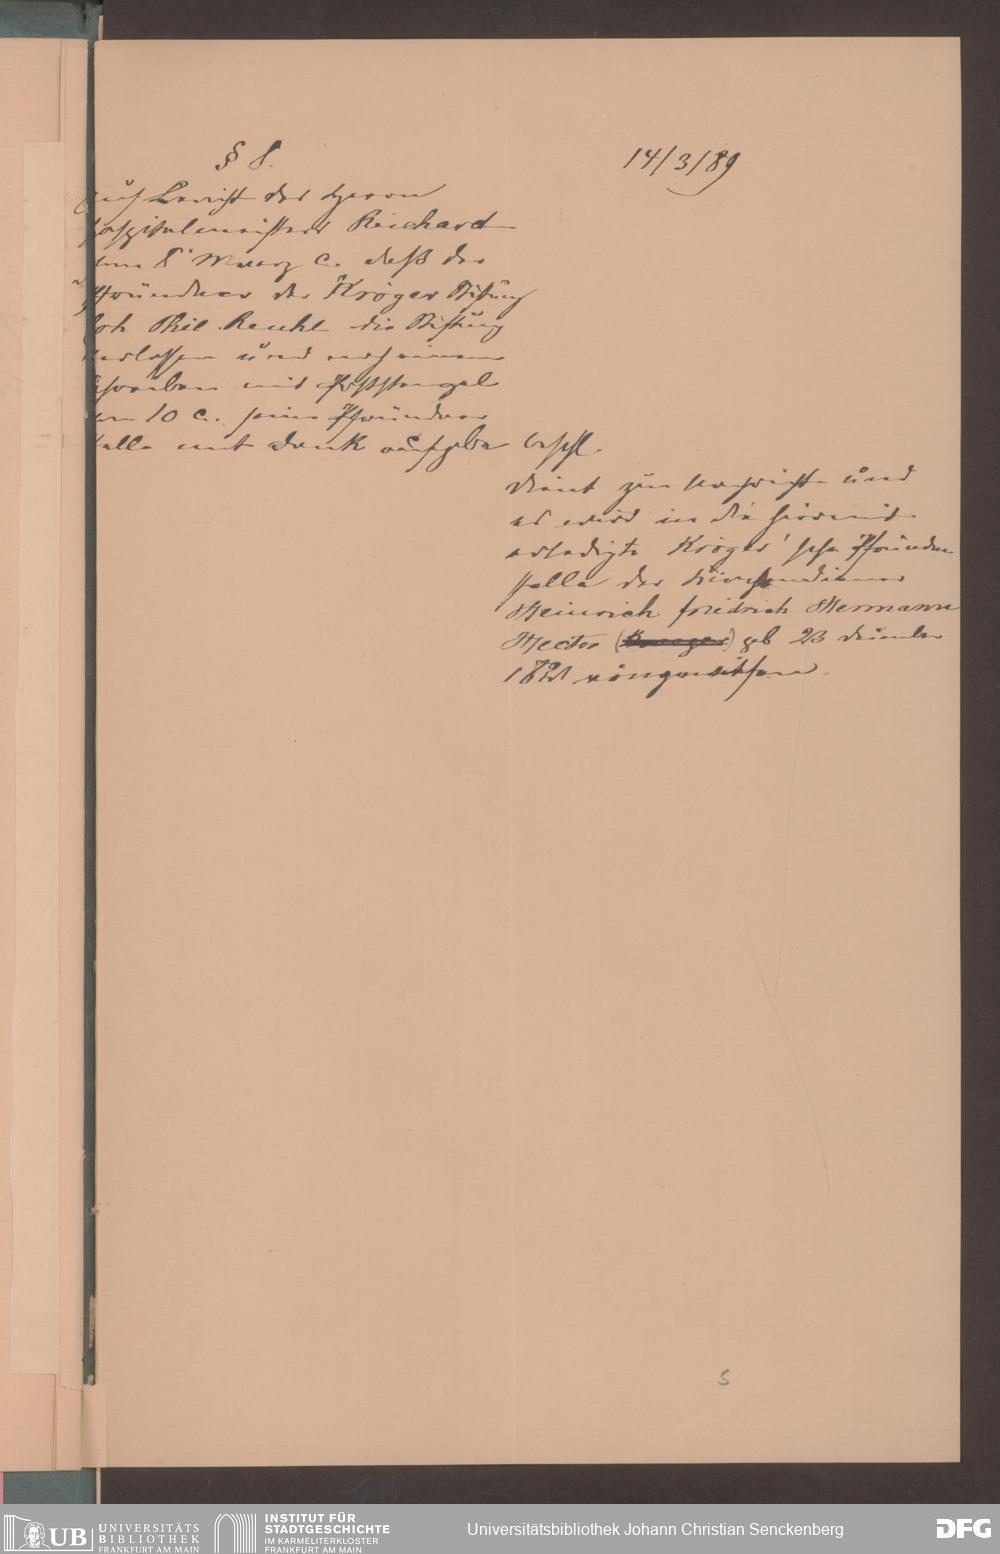 § 8.
14/3/89
auf Bericht des Herrn
Hospitalmeisters Reichard
vom 8' Maerz c. daß der
Pfründner der Kröger Stiftung
Joh Phil. die Stiftung
verlassen und nach einem
Schreiben mit Poststempel
vom 10 c. seine Pfründner
stelle mit Dank aufgebe beschl.
dient zur Nachricht und
es wird in die hiermit
erledigte Kröger'sche Pfründen
stelle der Kirchendiener
Heinrich Friedrich Hermann
geb 23 Dezember
1821 eingewiesen.
5
UB UNIVERSITÄTS
BIBLIOTHEK
FRANKFURT AM MAIN
INSTITUT FÜR
STADTGESCHICHTE
IM KARMELITERKLOSTER
FRANKFURT AM MAIN
Universitätsbibliothek Johann Christian Senckenberg
DFG